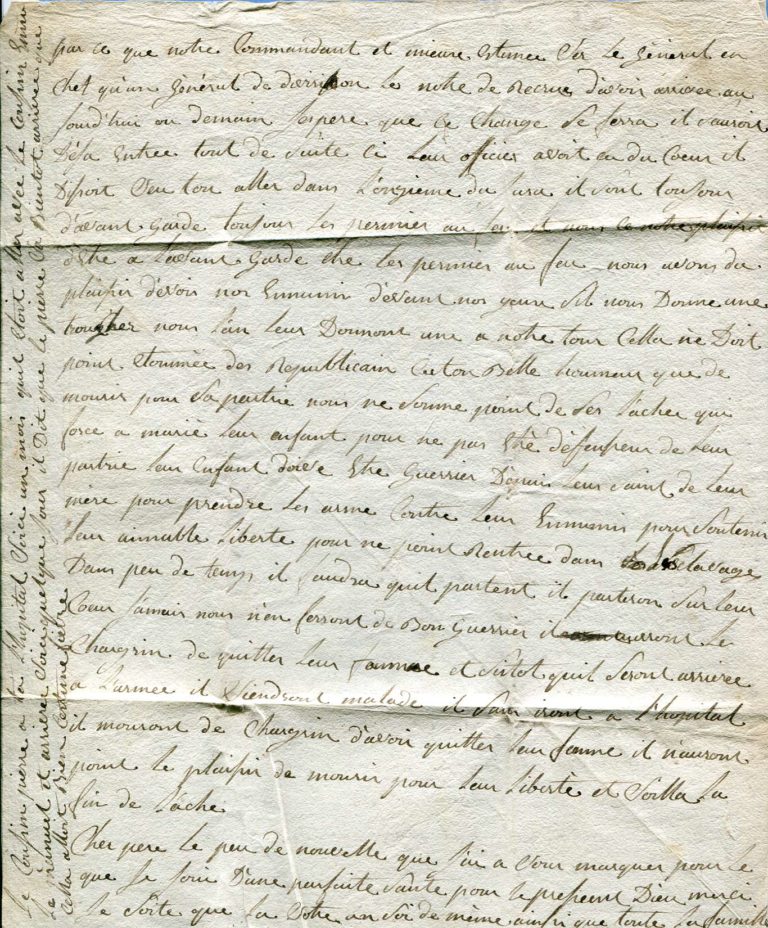 par ce que notre Commandant et mieure Estimee Ché le Général en
Chef qu'un Général de divizion le notre de Recrue d'avoir arrivee au
jourd'hui ou demain Jespere que ce Change Se ferra il s'auroit
Déja Entree tout de Suite Ci leur officier avoit eu du Coeur il
Disoit Veu ton aller dans L'onzieme du Jura il sont toujour
d'avant Garde toujour les permier au feu et nous ce notre plaisir
d'Etre a L'avant Garde Etre les permier au feu nous avons du
plaisir d'avoir nos Ennumin d'evant nos yeux S'il nous Donne une
nous l'an leur Donnont une a notre tour Cella ne Doit
point Etonnée des Republicain Cet ton Belle honneur que de
mourir pour Sa partrie nous ne Somme point de Ses lache que
force a marié leur enfant pour ne pas Etre deffenseur de leur
partrie leur Enfant doive Etre Guerrier Depuis leur saint de leur
mere pour prendre les arme Contre leur Ennumis pour Soutenir
leur aimable Liberte pour ne point Rentree dans Lesclavage
Dans peu de temps il faudra quil partent il partiron Sur leur
Coeur Jamais nous n'en ferront de Bon Guerrier il aurront le
Chargrin de quitter leur famme et Sitot quil Seront arrivee
a L'armee il viendront malade il San iront a L'hopital
il mouront de Chargrin d'avoir quitter leur famme il n'auront
point le plaisir de mourir pour leur Liberté et Voilla la
fin de lâche
Cher pere le peu de nouvelle que J'ai a vous marquer pour le
que Je Joui D'une parfaite Santé pour le present Dieu merci
le Soite que la Votre an Soi de meme ainsi que toute la famille
Le Cousin pierre a La L'hopital Voici un mois quil étoit aller avec le Cousin
Le et arrivee Voici quelque Jour il Dit que le pierre Va Bientot arrivee que
Cella alloit Bien Cetoit une fievre